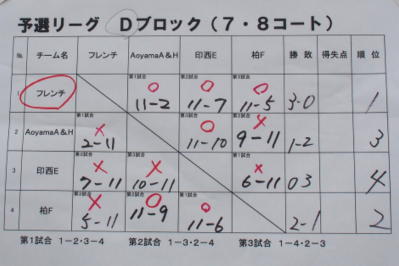 予選リーグ Dブロック(7・8コート)
№ チーム名 フレンチ AoyamaA&H 印西E 柏F 勝敗 得失点 順位
1 フレンチ ○ 11-2 ○ 11-7 ○ 11-5 3-0 1
2 AoyamaA&H 第1試合 × 2-11 ○ 11-10 × 9-11 1-2 3
3 印西E × 7-11 × 10-11 × 6-11 0 3 4
4 柏F × 5-11 ○ 11-9 第1試合 ○ 11-6 2-1 2
第1試合 1-2・3-4 第2試合 1-3・2-4 第3試合 1-4・2-3